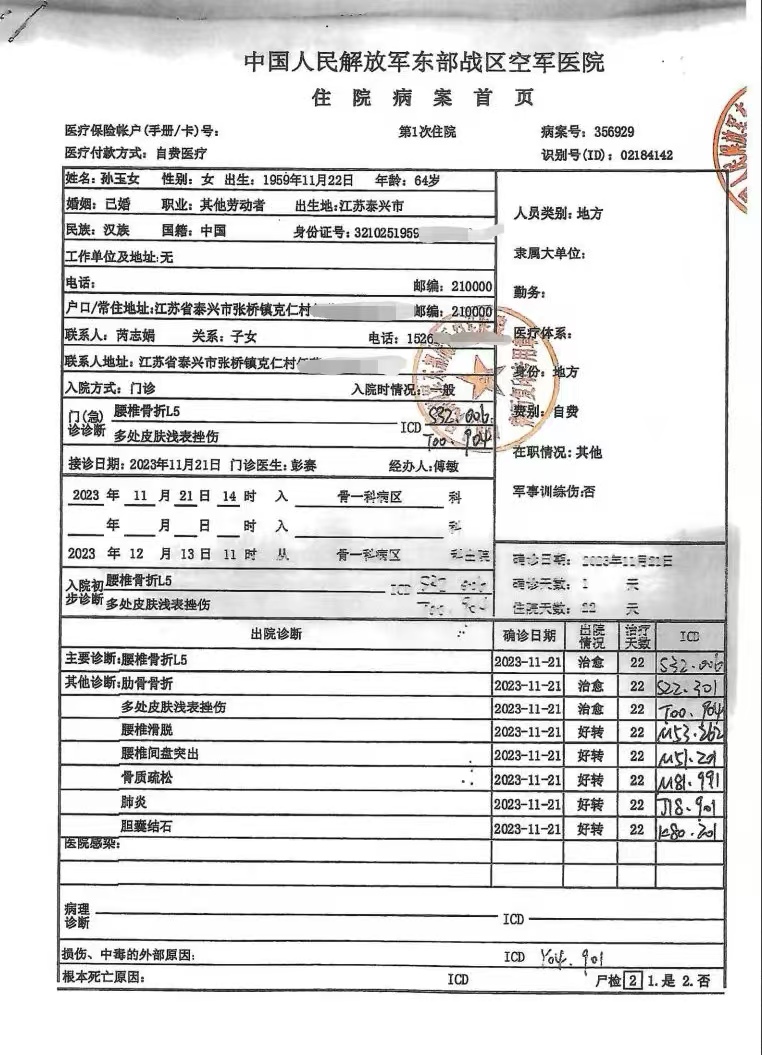 中国人民解放军东部战区空军医院
住院病案首页
医疗保险帐户(手册/卡)号: 第1次住院 病案号: 356929
医疗付款方式: 自费医疗 识别号(ID): 02184142
姓名: 孙玉女 性别: 女 出生: 1959年11月22日 年龄: 64岁
婚姻: 已婚 职业: 其他劳动者 出生地:江苏泰兴市
人员类别: 地方
民族: 汉族 国籍: 中国 身份证号: 3210251959
隶属大单位:
工作单位及地址:无
电话: 邮编: 210000
勤务:
户口/常住地址:江苏省泰兴市张桥镇克仁村 邮编: 210000
联系人: 芮志娟 关系: 子女 电话: 1526
医疗体系:
联系人地址: 江苏省泰兴市张桥镇克仁村
身份: 地方
入院方式: 门诊 入院时情况: 一般
门(急)诊诊断 腰椎骨折L5 ICD S32.006
费别: 自费
多处皮肤浅表挫伤 T00.904
在职情况: 其他
接诊日期: 2023年11月21日 门诊医生: 彭赛 经办人: 傅敏
军事训练伤:否
2023 年 11 月 21 日 14 时 入 骨一科病区 科
年 月 日 时 入 科
2023 年 12 月 13 日 11 时 从 骨一科病区 科出院
确诊日期: 2023年11月21日
入院初步诊断 腰椎骨折L5 ICD S32.006
确诊天数: 1 天
多处皮肤浅表挫伤 T00.904
住院天数: 22 天
出院诊断 确诊日期 出院情况 治疗天数 ICD
主要诊断: 腰椎骨折L5 2023-11-21 治愈 22 S32.006
其他诊断: 肋骨骨折 2023-11-21 治愈 22 S22.301
多处皮肤浅表挫伤 2023-11-21 治愈 22 T00.904
腰椎滑脱 2023-11-21 好转 22 M53.262
腰椎间盘突出 2023-11-21 好转 22 M51.201
骨质疏松 2023-11-21 好转 22 M81.991
肺炎 2023-11-21 好转 22 J18.901
胆囊结石 2023-11-21 好转 22 K80.201
医院感染:
病理诊断 ICD
损伤、中毒的外部原因: ICD Y04.901
根本死亡原因: ICD 尸检 2 1.是 2.否